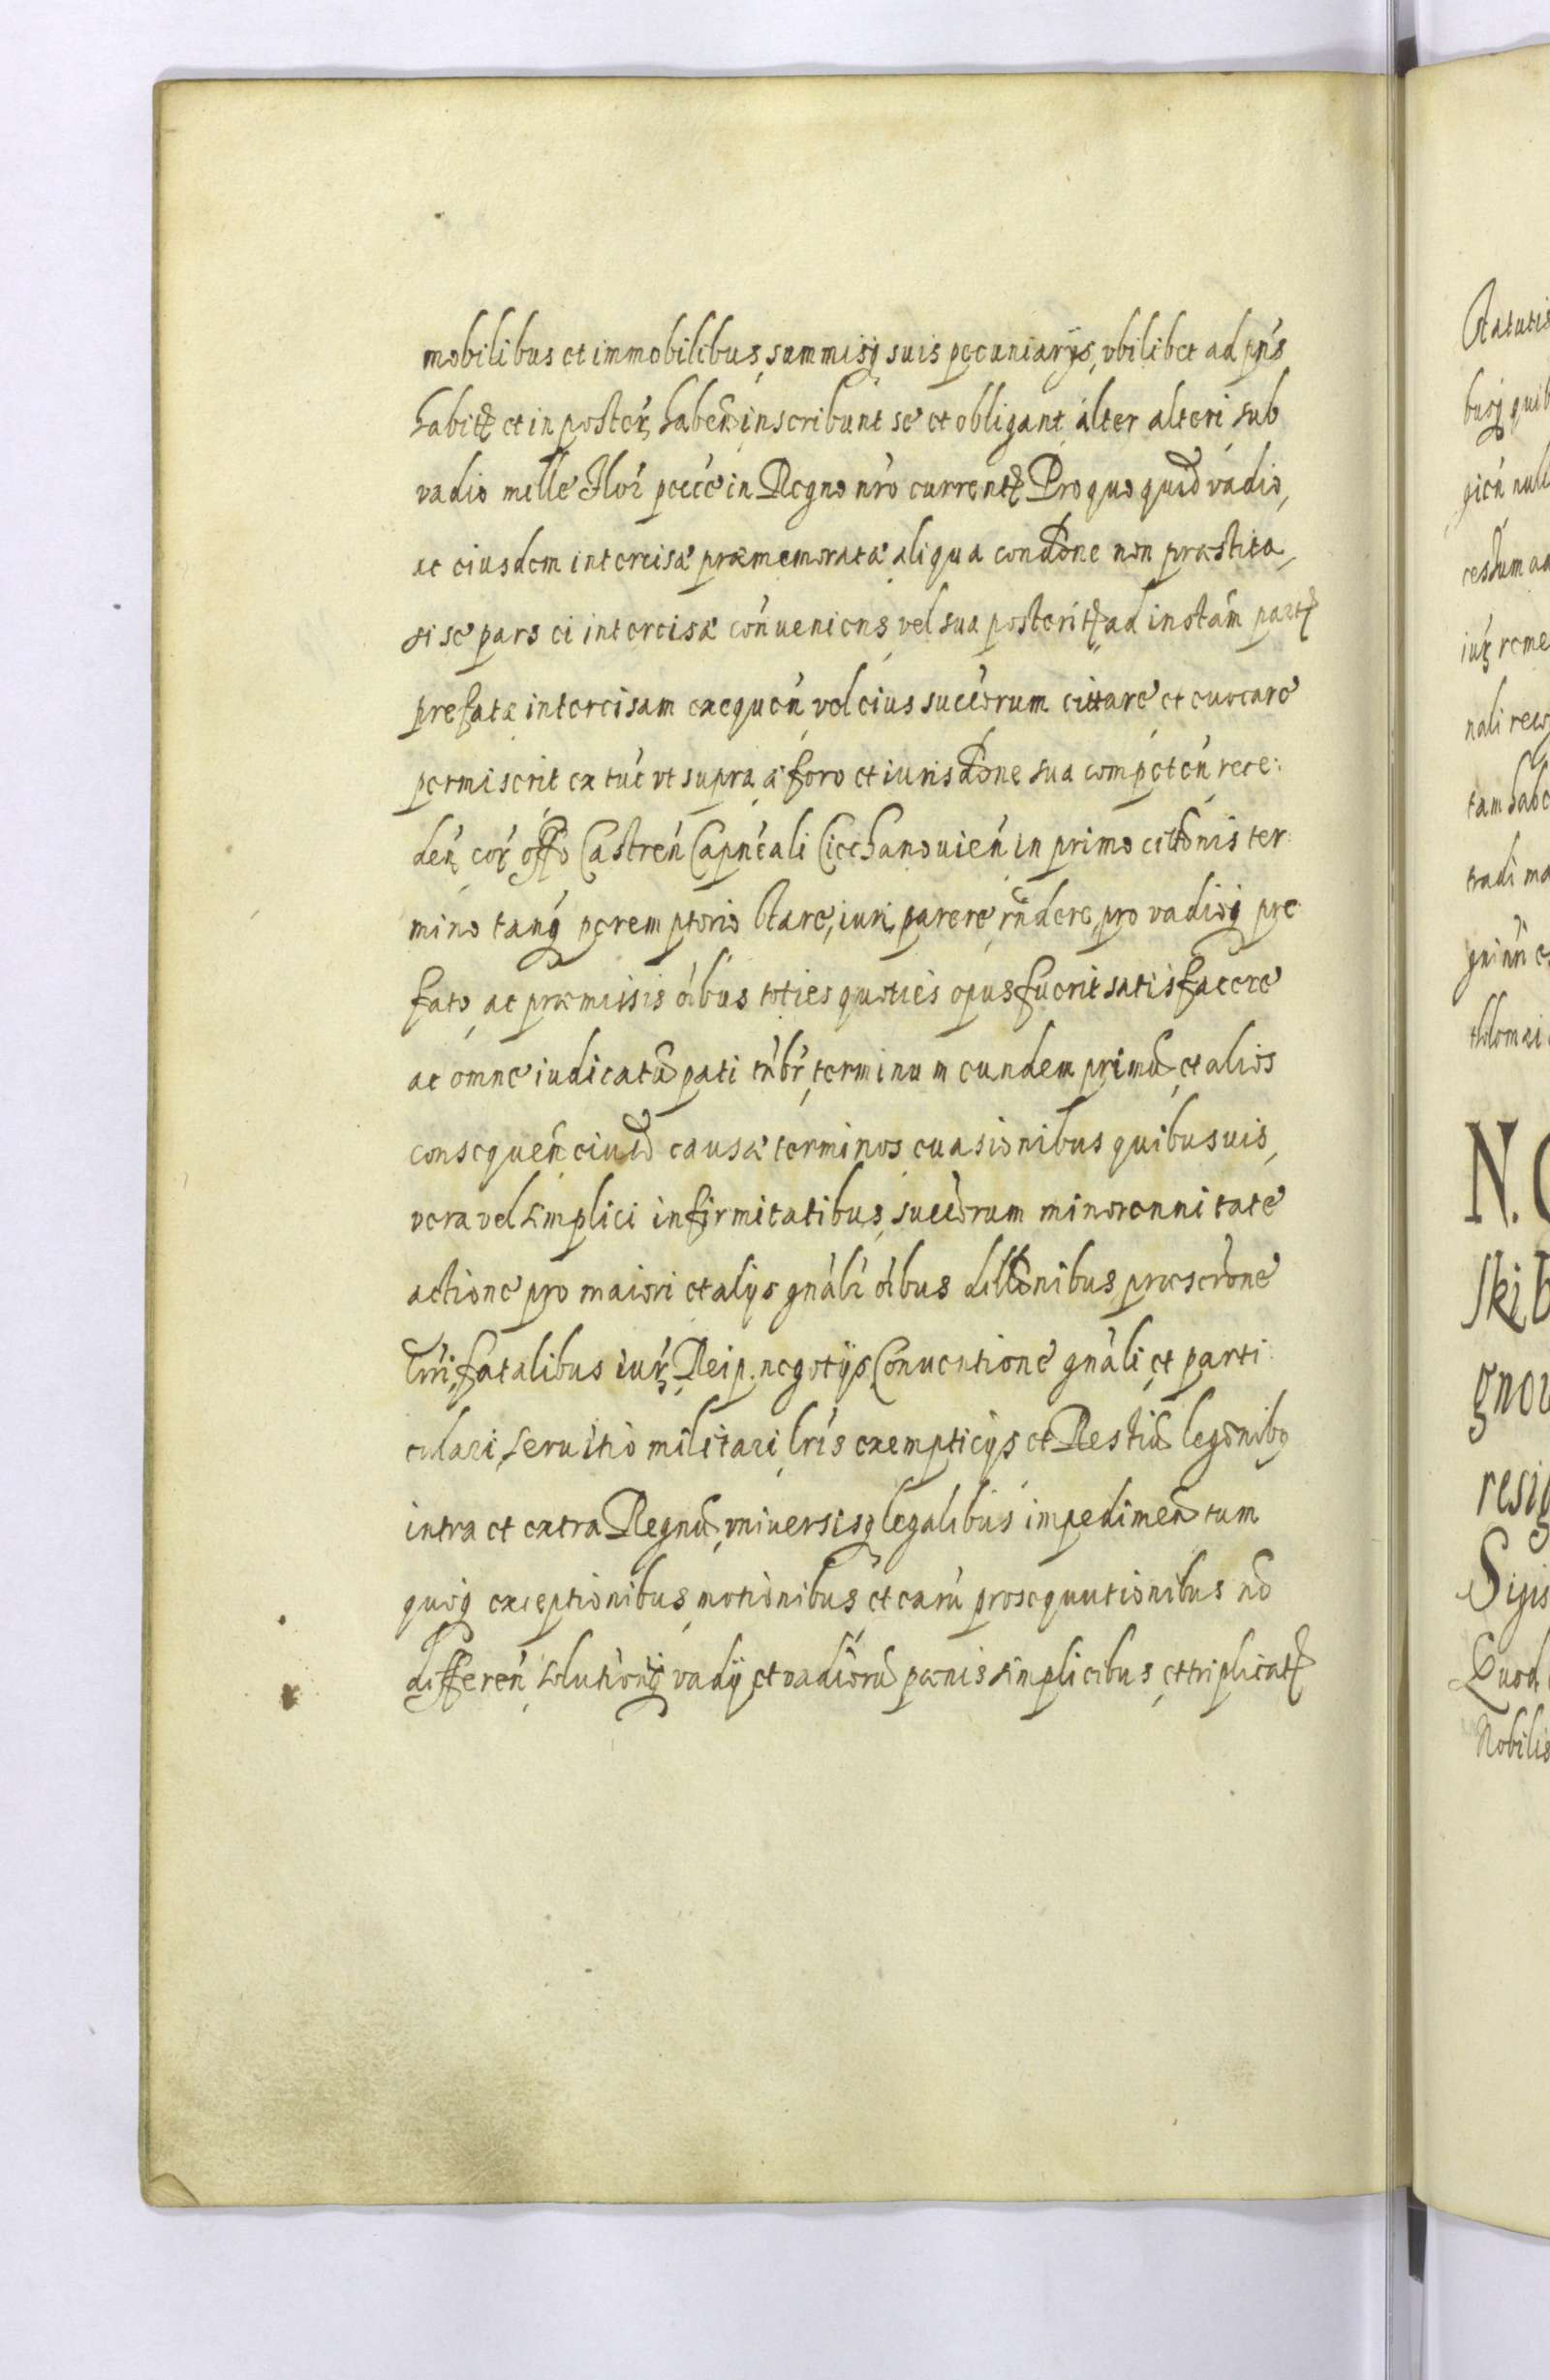 mobilibus et immobilibus, summisq suis pecuniarijs, vbilibet ad pn̄s
habitȩ et in poster haben̄ inscribunt se et obligant alter alteri sub
vadio mille Flor pecc̄e in Regno nr̄o currentȩ Pro quo quid vadio,
ac eiusdem intercisæ præmemoratæ aliqua condōne non præstita,
si se pars ei intercisæ con̄ueniens, vel sua posteritȩ ad instān partȩ
prefatæ intercisam exequen̄ vel eius succorum cittare et euocare
permiserit ex tūc vt supra a foro et iurisdōne sua competen̄ rece:
den̄ cor offo Castren̄ Capn̄eali Ciechanouien̄ in primo citt̄onis ter:
mino tanq peremptorio stare, iuri parere, rn̄dere, pro vadioq pre
fato ac præmissis oībus toties quoties opus fuerit satisfacere
ac omne iudicatū pati tn̄br, terminum eundem primū et alios
consequen̄ eiusd causæ terminos euasionibus quibusuis,
vera vel simplici infirmitatibus, succorum minorennitate
actione pro maiori et alijs gnāli oībus dill̄onibus præscrōne
Trri, fatalibus iur Reip. negotijs Conuentione gnāli et parti
culari, seruitio militari, lr̄is exempticijs et Restiū legōnibq
intra et extra Regnū, vniuersisq legalibus impedimen̄tum
quoq exceptionibus, motionibus et earū prosequutionibus nō
differen̄ solutionq vadij et vadiorū pœnis simplicibus et triplicatȩ
N.
ski
gno
resig
Sigis
Quod
Nobilis